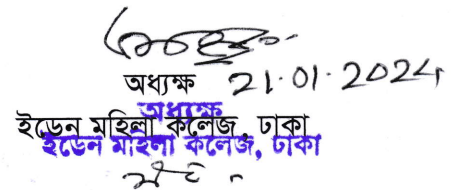 অধ্যক্ষ 21.01.2024
অধ্যক্ষে
ইডেন মহিলা কলেজ, ঢাকা
ইডেন মহিলা কলেজ, ঢাকা